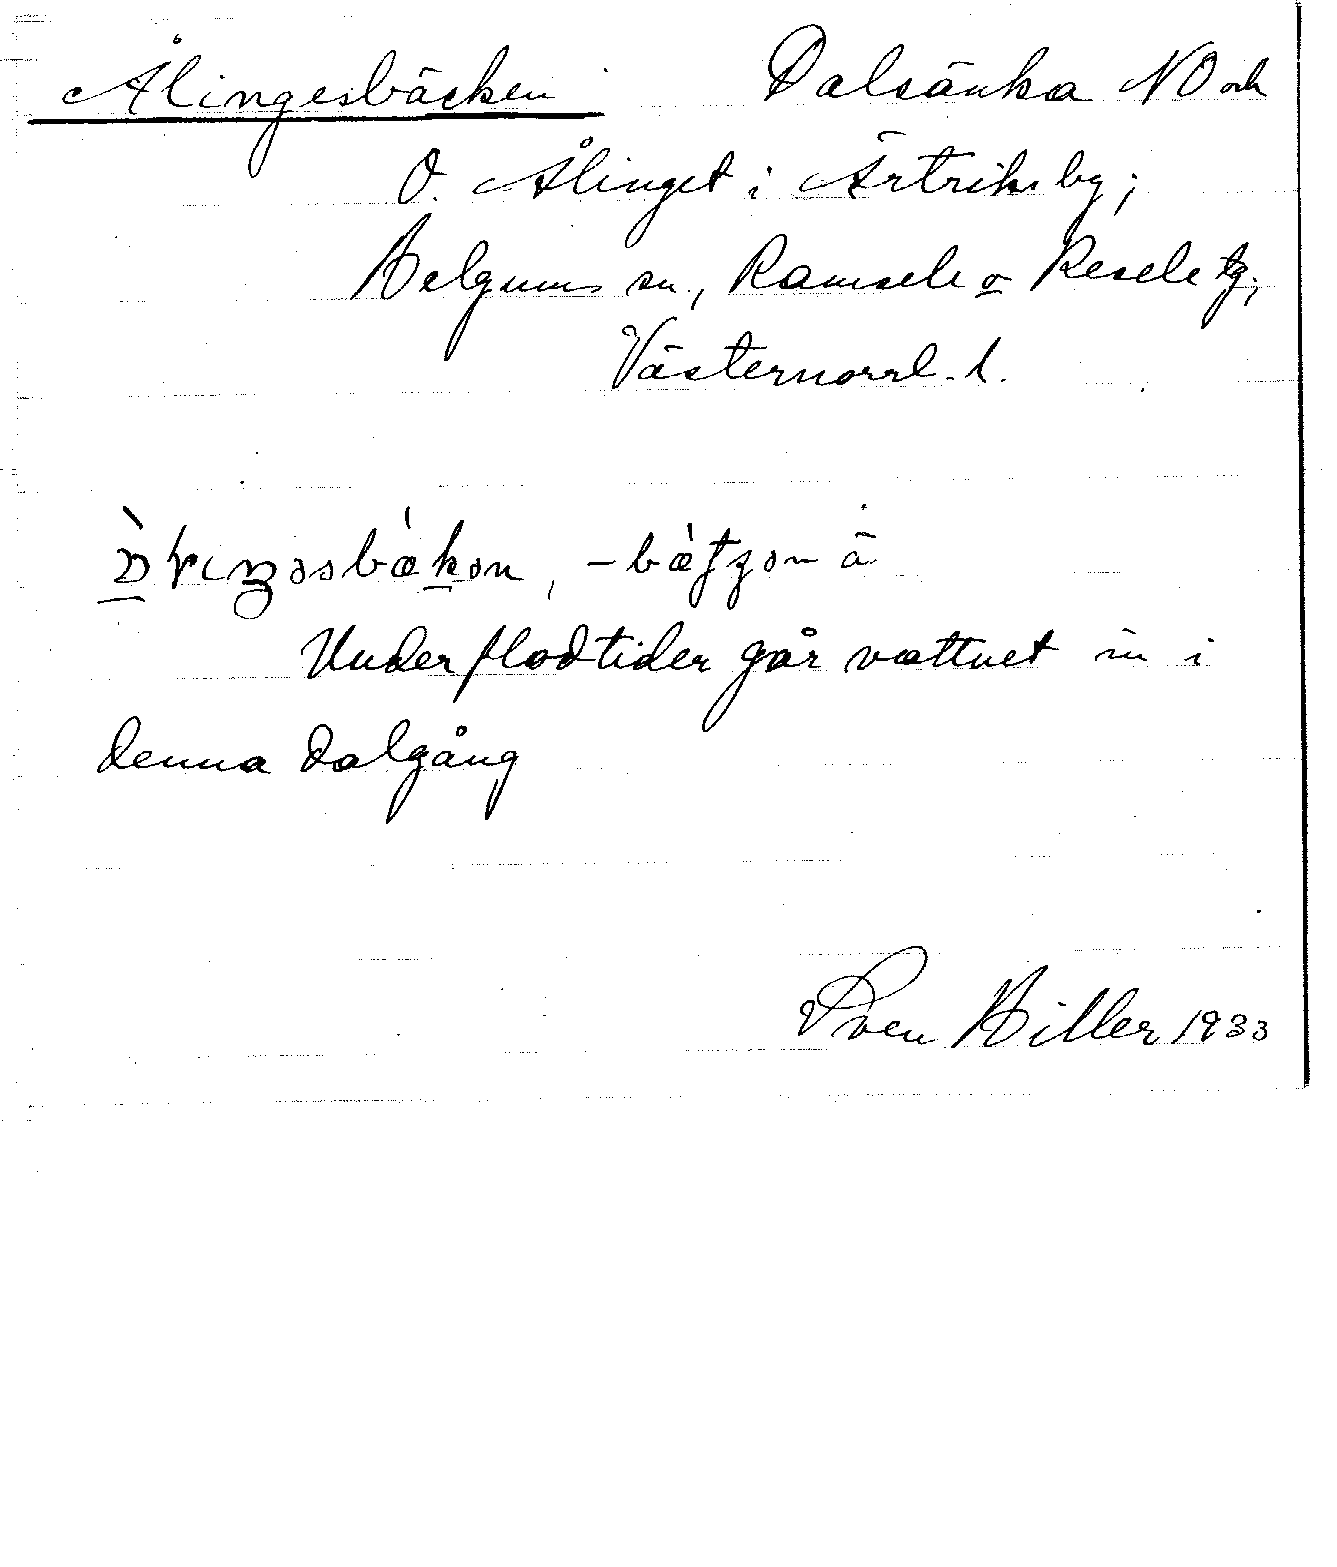 Ålingesbäcken Dalsänka NO och
O. Ålinget i Ärtriks by;
Helgums sn, Ramsele o Resele tg;
Västernorrl. l.
-bätjən ä
Under flodtider går vattnet in i
denna dalgång
Sven Hiller 1933